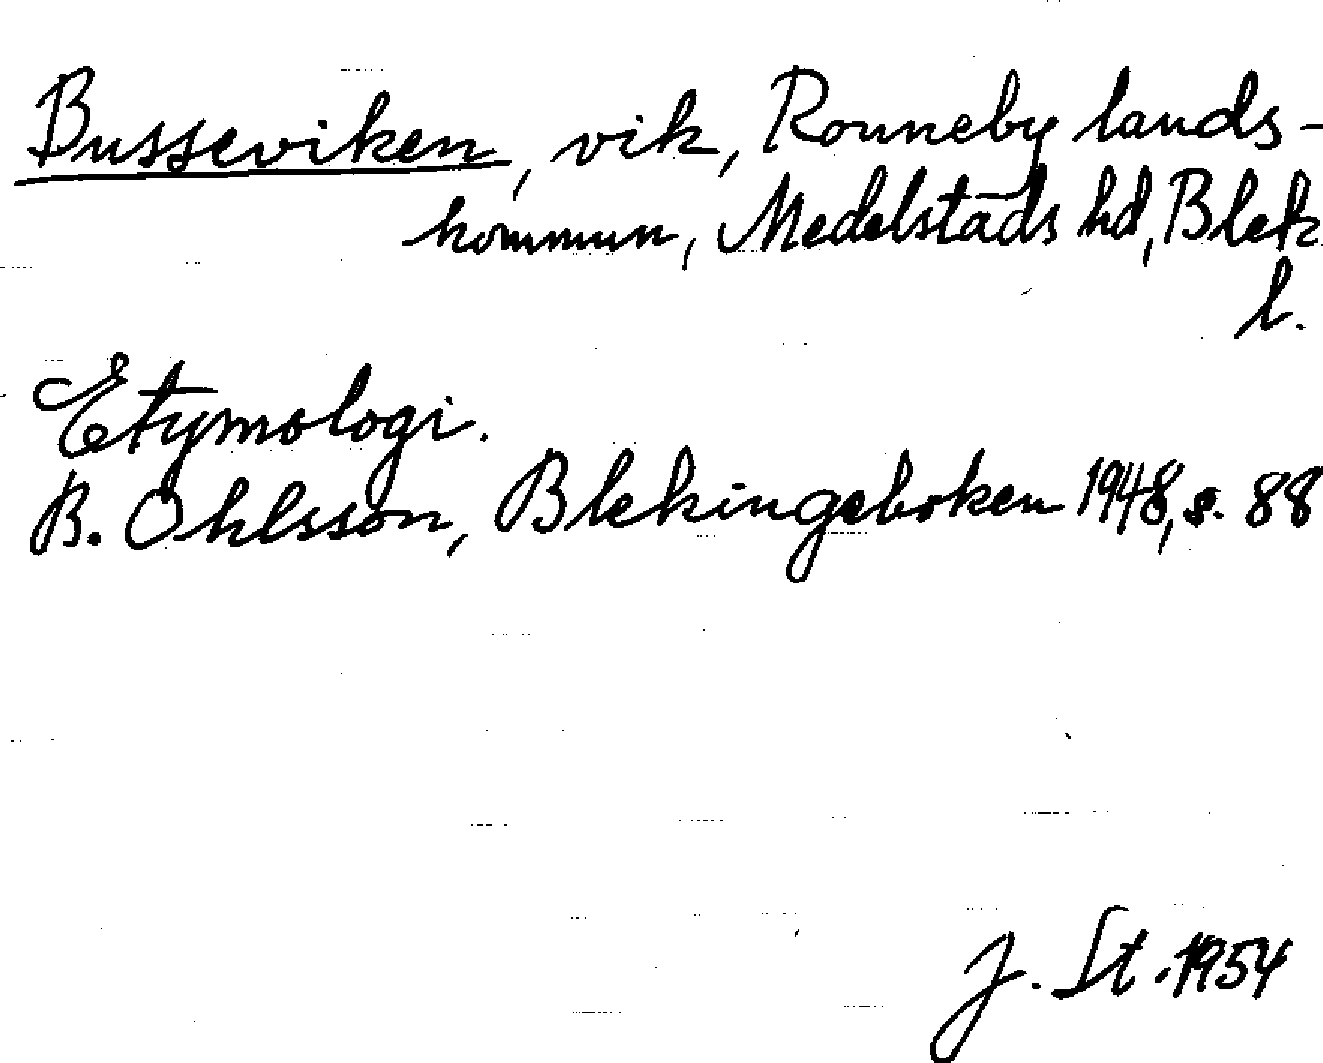 Busseviken, vik, Ronneby lands-
kommun, Medelstads hd, Blek.
l.
Etymologi.
B. Ohlsson, Blekingeboken 1948, s. 88
J. St. 1954